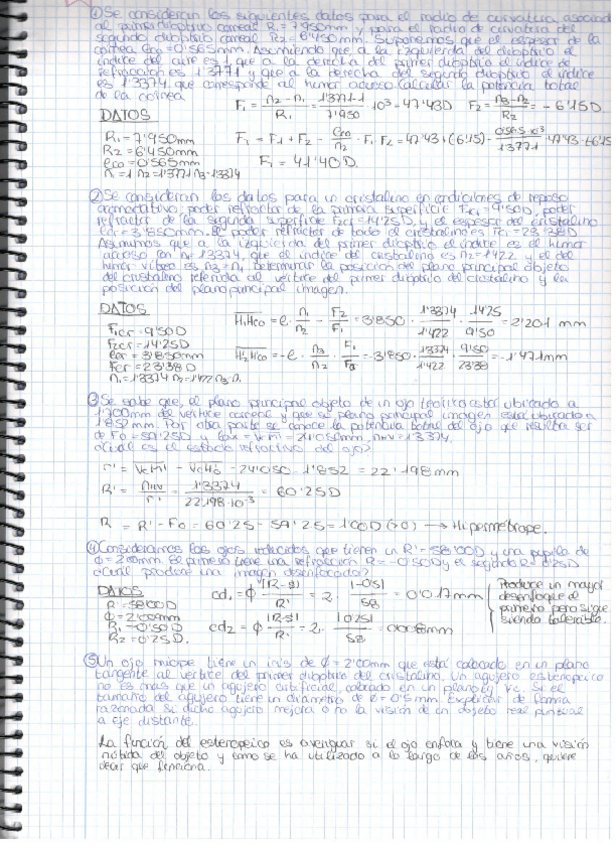 ① Se consideran los siguientes datos para el radio de curvatura asociado
al primer dioptrio corneal R1 = 7'950mm y para el radio de curvatura del
segundo dioptrio corneal R2 = 6'450mm. Suponemos que el espesor de la
córnea eco = 0'565mm. Asumiendo que a la izquierda del dioptrio el
índice del aire es 1, que a la derecha del primer dioptrio el índice de
refracción es 1'3771 y que a la derecha del segundo dioptrio el índice
es 1'3374 que corresponde al humor acuoso calcular la potencia total
de la córnea
DATOS
R1 = 7'950mm
R2 = 6'450mm
eco = 0'565mm
n1 = 1 n2 = 1'3771 n3 = 1'3374
F1 = n2 - n1 / R1 = 1'3771-1 / 7'950 · 10³ = 47'43D F2 = n3-n2 / R2 = -6'15D
F1 = F1 + F2 - eco / n2 · F1 · F2 = 47'43 + (6'15) - 0'565·10³ / 1'3771 · 47'43 · 6'15
F1 = 41'40D
② Se consideran los datos para un cristalino en condiciones de reposo
acomodativo, poder refractor de la primera superficie F1cr = 9'50D, poder
refractor de la segunda superficie F2cr = 14'25D y el espesor del cristalino
ecr = 3'850mm. El poder refractor de todo el cristalino es Fcr = 23'38D
Asumimos que a la izquierda del primer dioptrio el índice es el humor
acuoso con n1 = 1'3374, que el índice del cristalino es n2 = 1'422 y el del
humor vítreo es n3 = n1. Determinar la posición del plano principal objeto
del cristalino referida al vértice del primer dioptrio del cristalino y la
posición del plano principal imagen.
DATOS
F1cr = 9'50D
F2cr = 14'25D
ecr = 3'850mm
Fcr = 23'38D
n1 = 1'3374 n2 = 1'422 n3 = n1
= e · n1 / n2 · F2 / F1 = 3'850 · 1'3374 / 1'422 · 14'25 / 9'50 = 2'201 mm
= -e · n3 / n2 · = -3'850 · 1'3374 / 1'422 · 9'50 / 23'38 = -1'471mm
③ Se sabe que el plano principal objeto de un ojo teórico está ubicado a
1'700mm del vértice corneal y que su plano principal imagen está ubicado a
1'852mm. Por otra parte se conoce la potencia total del ojo que resulta ser
de F0 = 59'25D y = 24'050mm, nhv = 1'3374.
¿Cuál es el estado refractivo del ojo?
r' = - = 24'050 - 1'852 = 22'198mm
R' = nhv / r' = 1'3374 / 22'198·10⁻³ = 60'25D
R = R' - F0 = 60'25 - 59'25 = 1'00D (>0) → Hipermétrope.
④ Consideramos los ojos reducidos que tienen un R' = 58'00D y una pupila de
ϕ = 2'00mm. El primero tiene una refracción R = -0'50D y el segundo R = 0'25D
¿Cuál produce una imagen desenfocada?
DATOS
R' = 58'00D
ϕ = 2'00mm
R1 = -0'50D
R2 = 0'25D.
cd1 = ϕ / R' = 2 · |-0'5| / 58 = 0'017mm
cd2 = ϕ / R' = 2 · |0'25| / 58 = 0'008mm
Produce un mayor
desenfoque el
primero pero sigue
siendo tolerable.
⑤ Un ojo miope tiene un iris de ϕ = 2'00mm que está colocado en un plano
tangente al vértice del primer dioptrio del cristalino. Un agujero estenopeico
no es más que un agujero artificial, colocado en un plano y Vc. Si el
tamaño del agujero tiene un diámetro de = 0'5mm. Explicar de forma
razonada si dicho agujero mejora o no la visión de un objeto real puntual
a eje distante.
La función del estenopeico es averiguar si el ojo enfoca y tiene una visión
nítida del objeto y como se ha utilizado a lo largo de los años, quiere
decir que funciona.